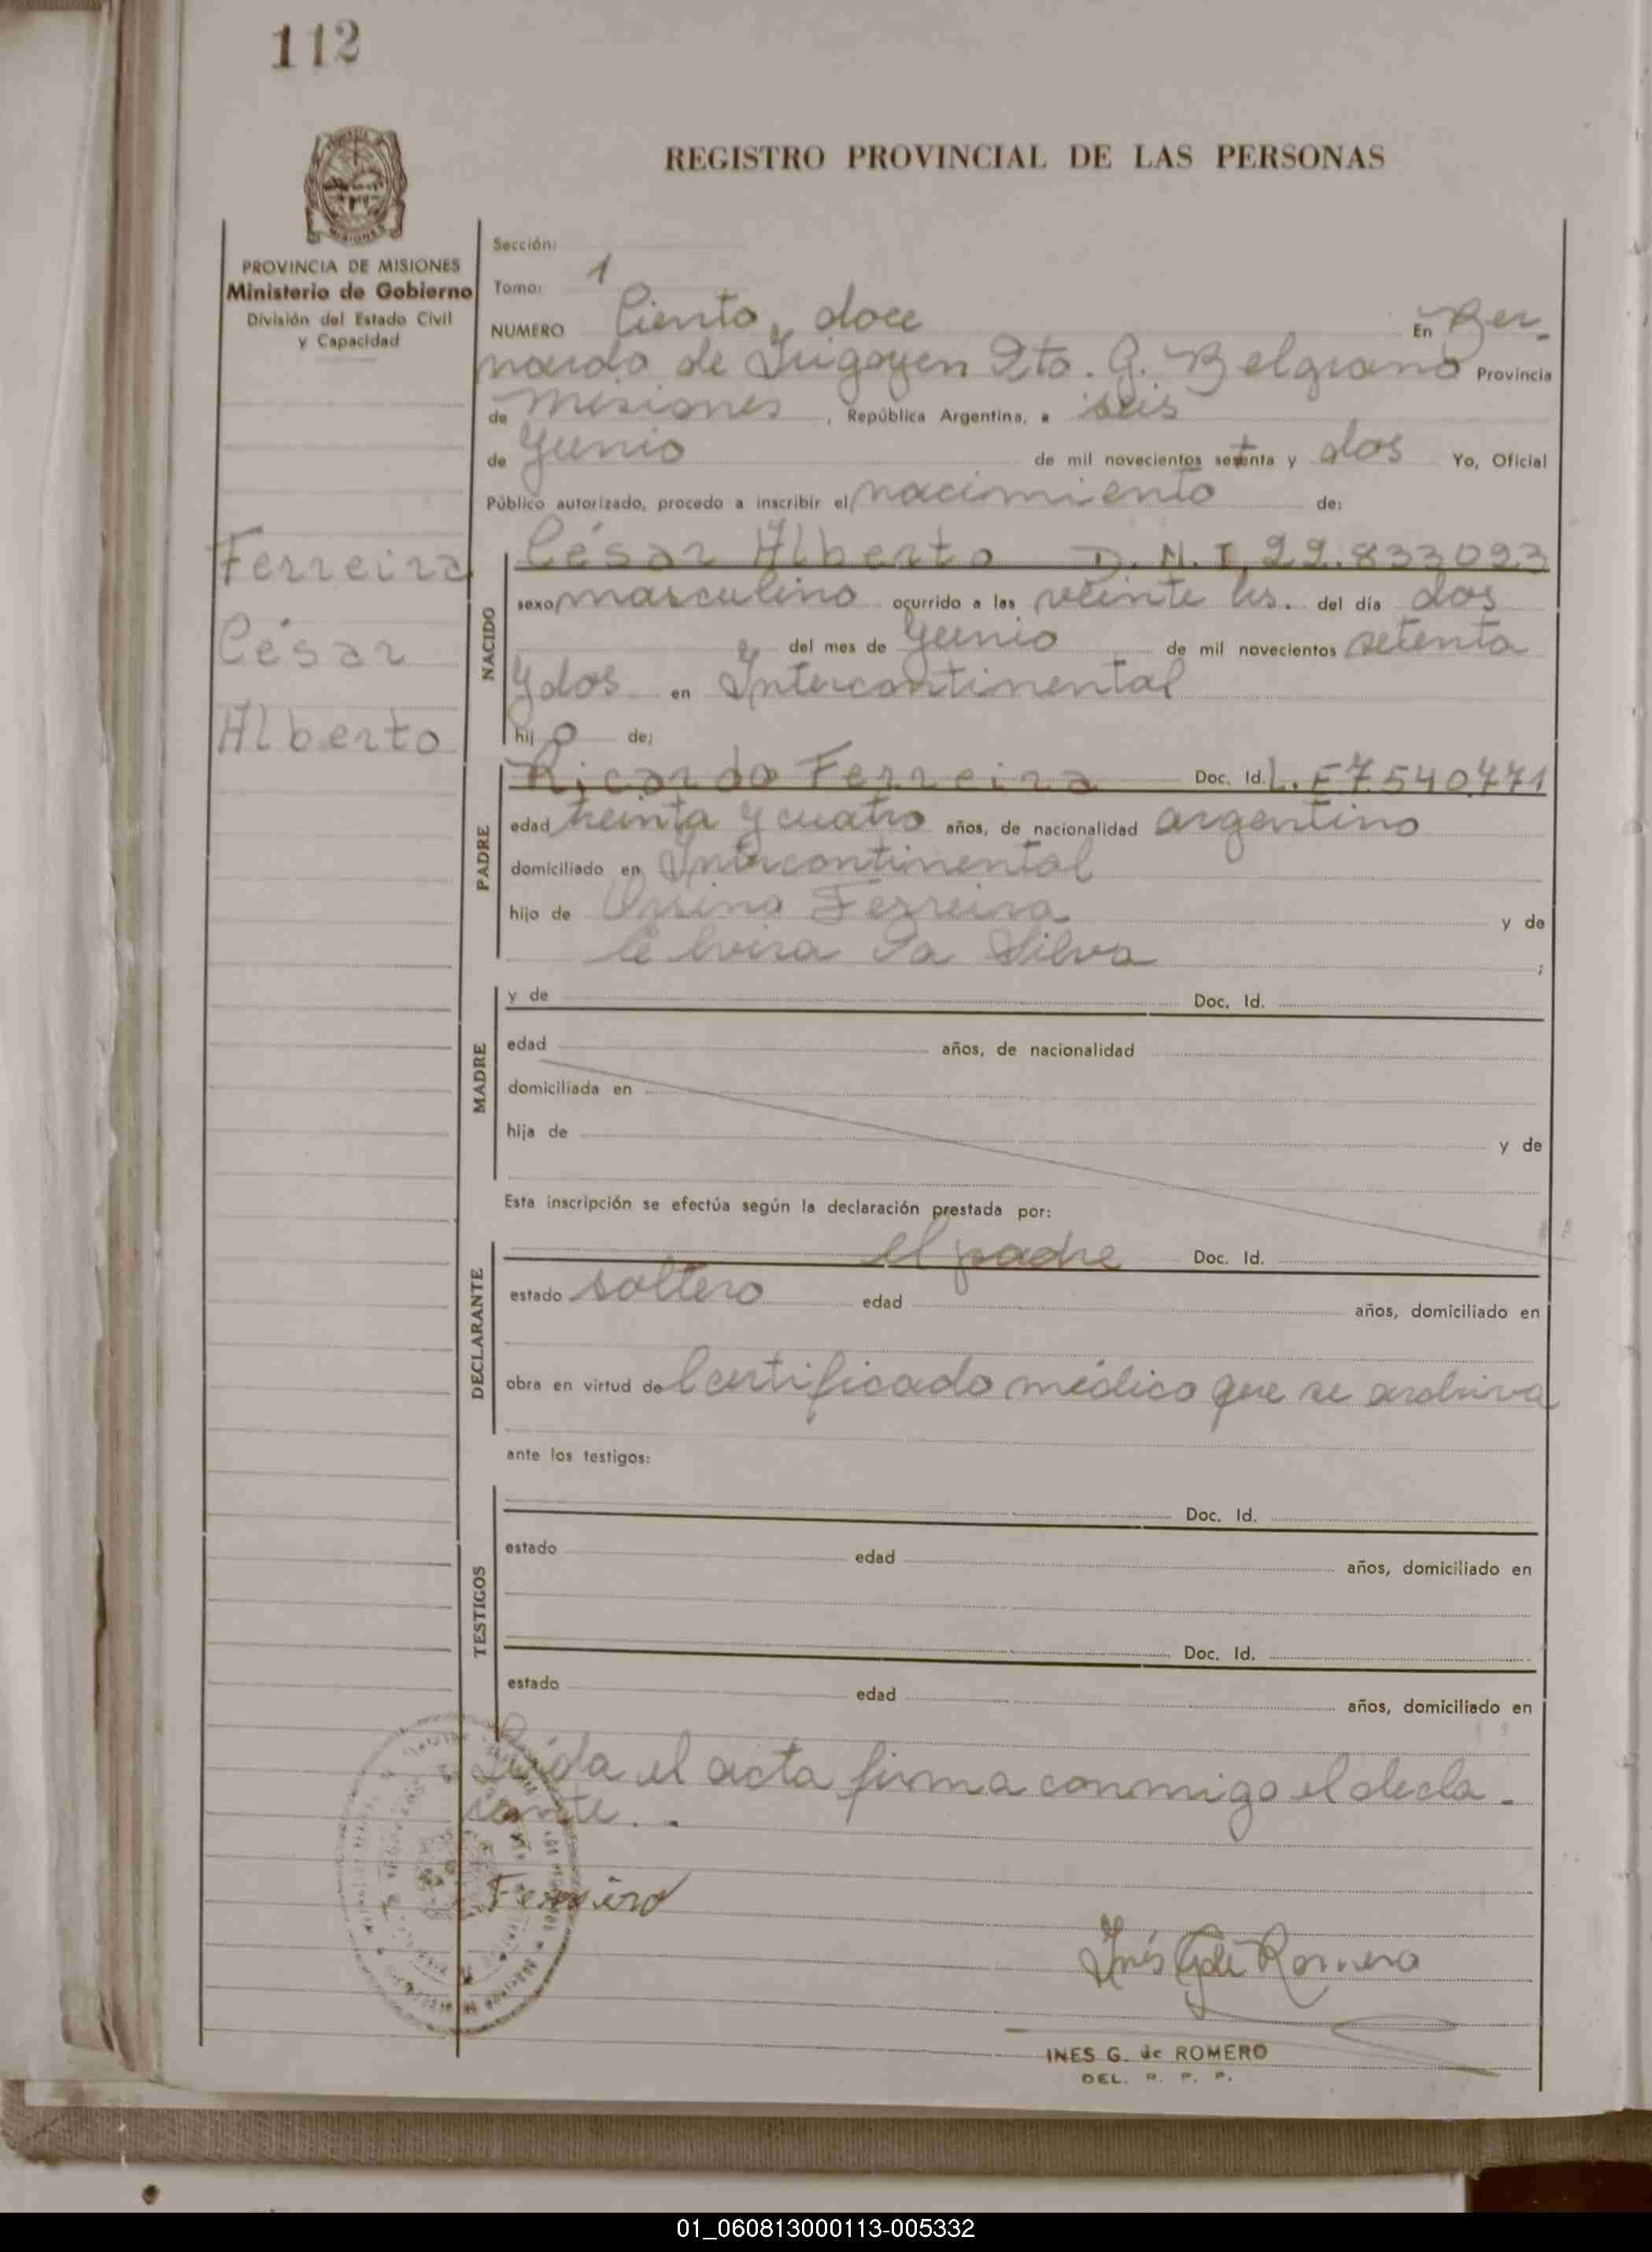 112
REGISTRO PROVINCIAL DE LAS PERSONAS
PROVINCIA DE MISIONES
Ministerio de Gobierno
División del Estado Civil
y Capacidad
Sección:
Tomo: 1
NUMERO Ciento doce En Ber-
nardo de Irigoyen Dto. G. Belgrano Provincia
de Misiones, República Argentina, a seis
de Junio de mil novecientos setenta y dos Yo, Oficial
Público autorizado, procedo a inscribir el nacimiento de:
Ferreira
César
Alberto
NACIDO
César Alberto D.N.I. 22.833023
sexo masculino ocurrido a las veinte hs. del día dos
del mes de Junio de mil novecientos setenta
y dos en Intercontinental
hijo de:
PADRE
Ricardo Ferreira Doc. Id. L.E 7.540.471
edad treinta y cuatro años, de nacionalidad argentino
domiciliado en Intercontinental
hijo de Ferreira y de
Da Silva ;
MADRE
y de Doc. Id.
edad años, de nacionalidad
domiciliada en
hija de y de
Esta inscripción se efectúa según la declaración prestada por:
DECLARANTE
el padre Doc. Id.
estado soltero edad años, domiciliado en
obra en virtud de Certificado médico que se archiva
ante los testigos:
TESTIGOS
Doc. Id.
estado edad años, domiciliado en
Doc. Id.
estado edad años, domiciliado en
Leída el acta firma conmigo el decla-
rante.
Inés G de Romero
INES G. de ROMERO
DEL. R. P. P.
01_060813000113-005332